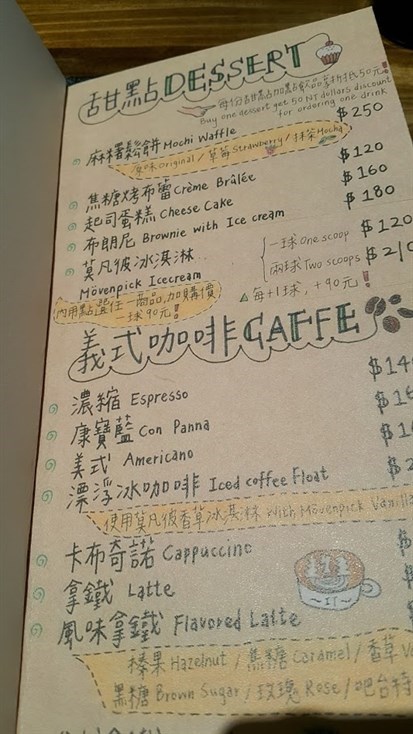 甜點 DESSERT
每份甜點加點飲品享折抵50元!
Buy one dessert get 50 NT dollars discount
for ordering one drink
麻糬鬆餅 Mochi Waffle $250
原味 Original / 草莓 Strawberry / 抹茶 Mocha
焦糖烤布蕾 Crème Brûlée $120
起司蛋糕 Cheese Cake $160
布朗尼 Brownie with Ice cream $180
莫凡彼冰淇淋
Mövenpick Icecream
一球 One scoop $120
兩球 Two scoops $210
▲每+1球,+90元!
內用點選任一商品,加購價
一球90元!
義式咖啡 CAFFE
濃縮 Espresso
康寶藍 Con Panna
美式 Americano
漂浮冰咖啡 Iced coffee Float
使用莫凡彼香草冰淇淋 With Mövenpick
卡布奇諾 Cappuccino
拿鐵 Latte
風味拿鐵 Flavored Latte
榛果 Hazelnut / 焦糖 Caramel / 香草
黑糖 Brown Sugar / 玫瑰 Rose / 吧台特